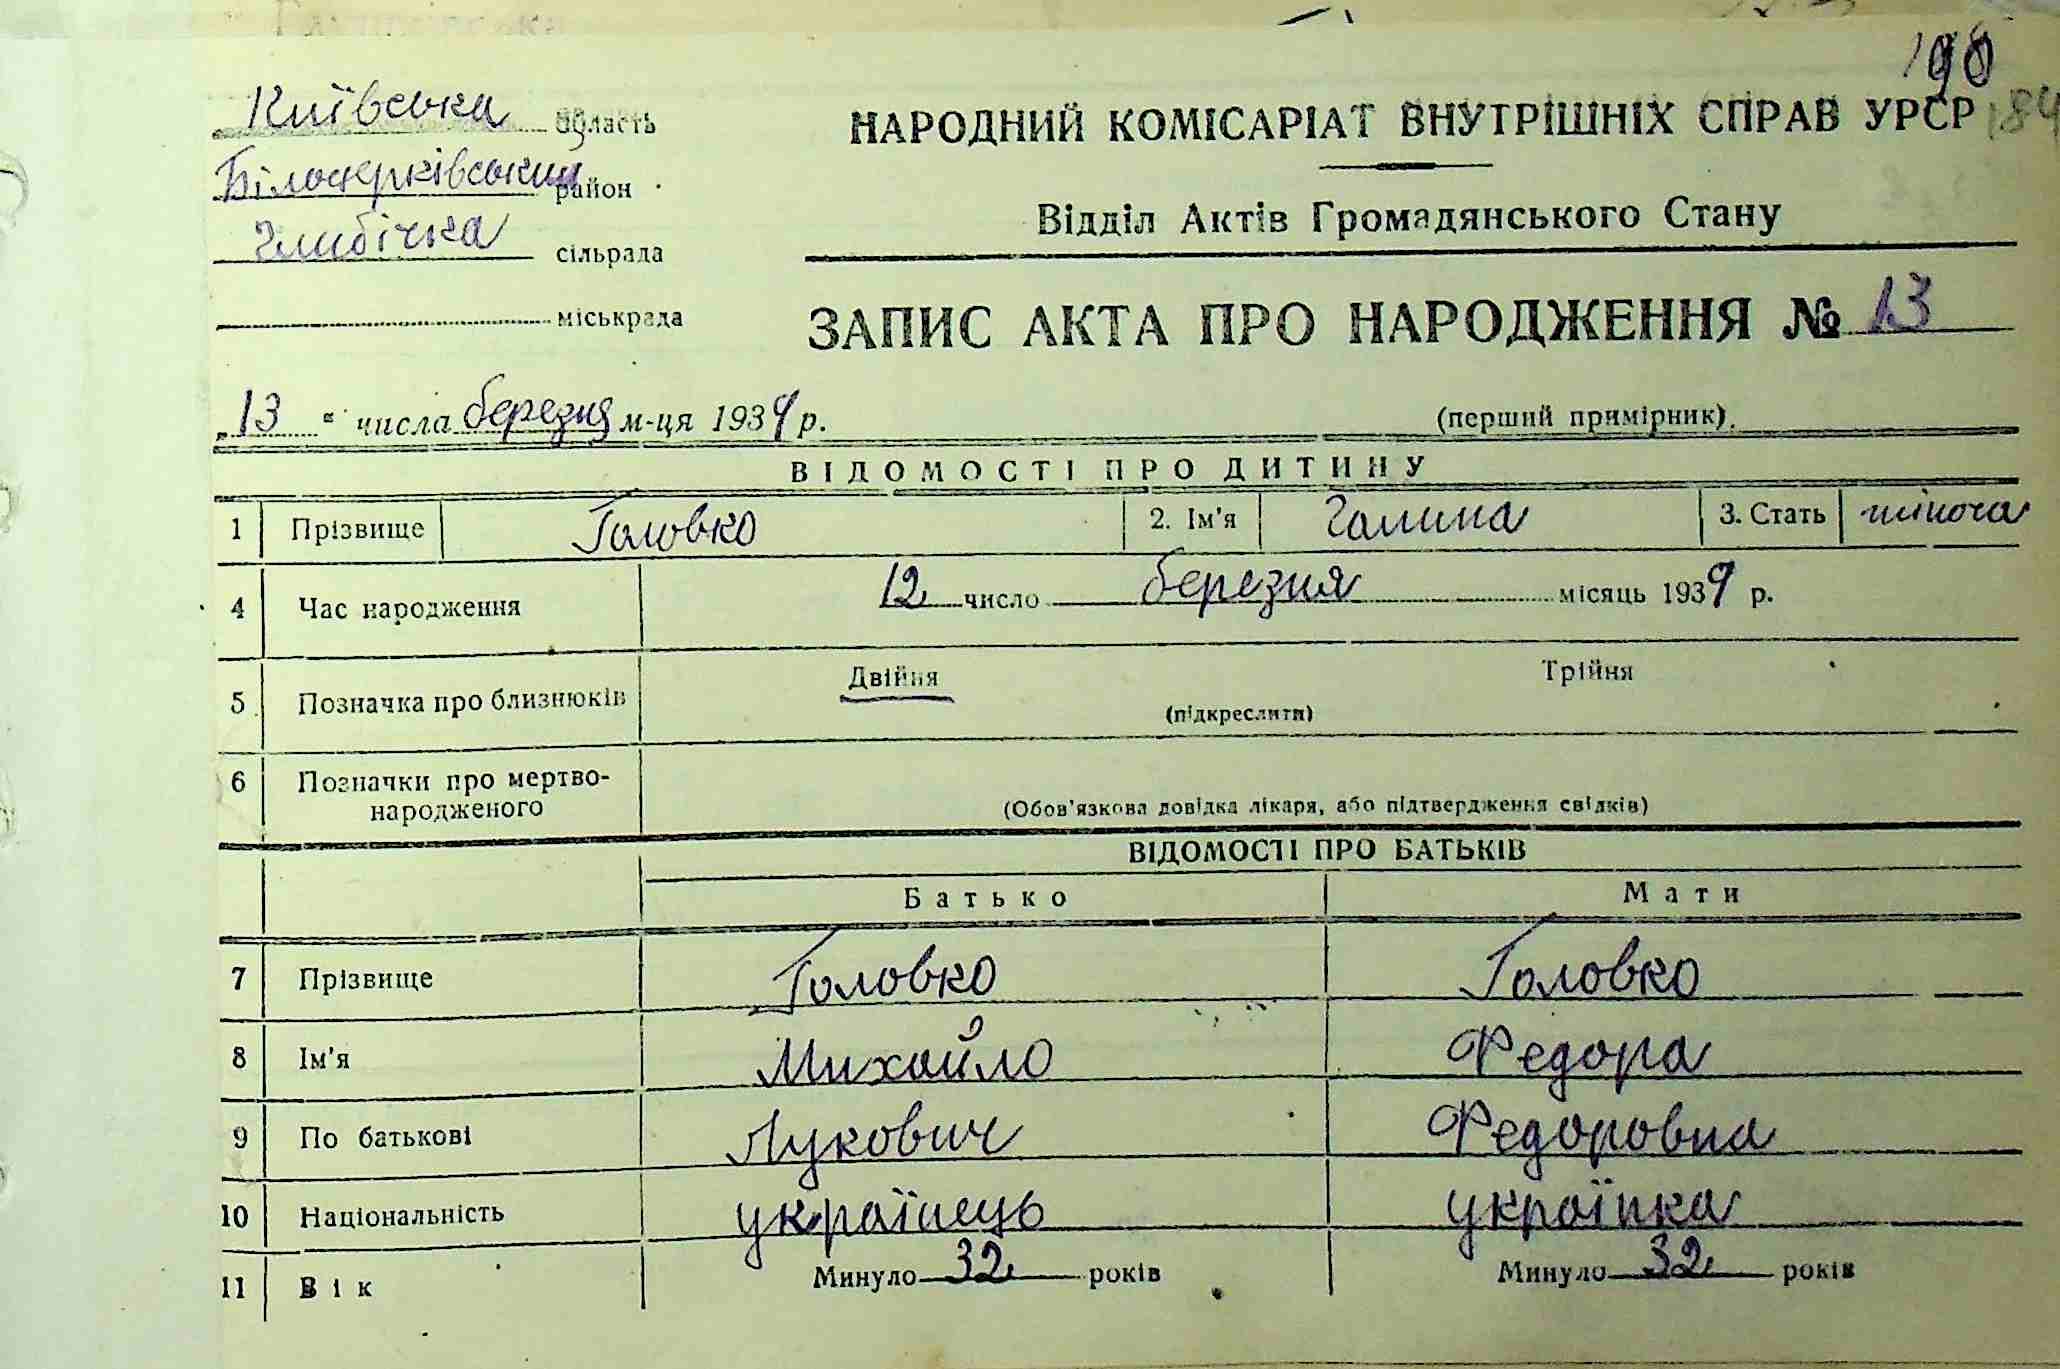 190
184
Київська область
Білоцерківський район
Глибічка сільрада
міськрада
НАРОДНИЙ КОМІСАРІАТ ВНУТРІШНІХ СПРАВ УРСР
Відділ Актів Громадянського Стану
ЗАПИС АКТА ПРО НАРОДЖЕННЯ № 13
„13“ числа березня м-ця 1939 р.
(перший примірник).
ВІДОМОСТІ ПРО ДИТИНУ
1 Прізвище Головко 2. Ім'я Галина 3. Стать жіноча
4 Час народження 12 число березня місяць 1939 р.
5 Позначка про близнюків Двійня Трійня
(підкреслити)
6 Позначки про мертво-
народженого
(Обов'язкова довідка лікаря, або підтвердження свідків)
ВІДОМОСТІ ПРО БАТЬКІВ
Батько Мати
7 Прізвище Головко Головко
8 Ім'я Михайло Федора
9 По батькові Лукович Федоровна
10 Національність українець українка
11 Вік Минуло 32 років Минуло 32 років